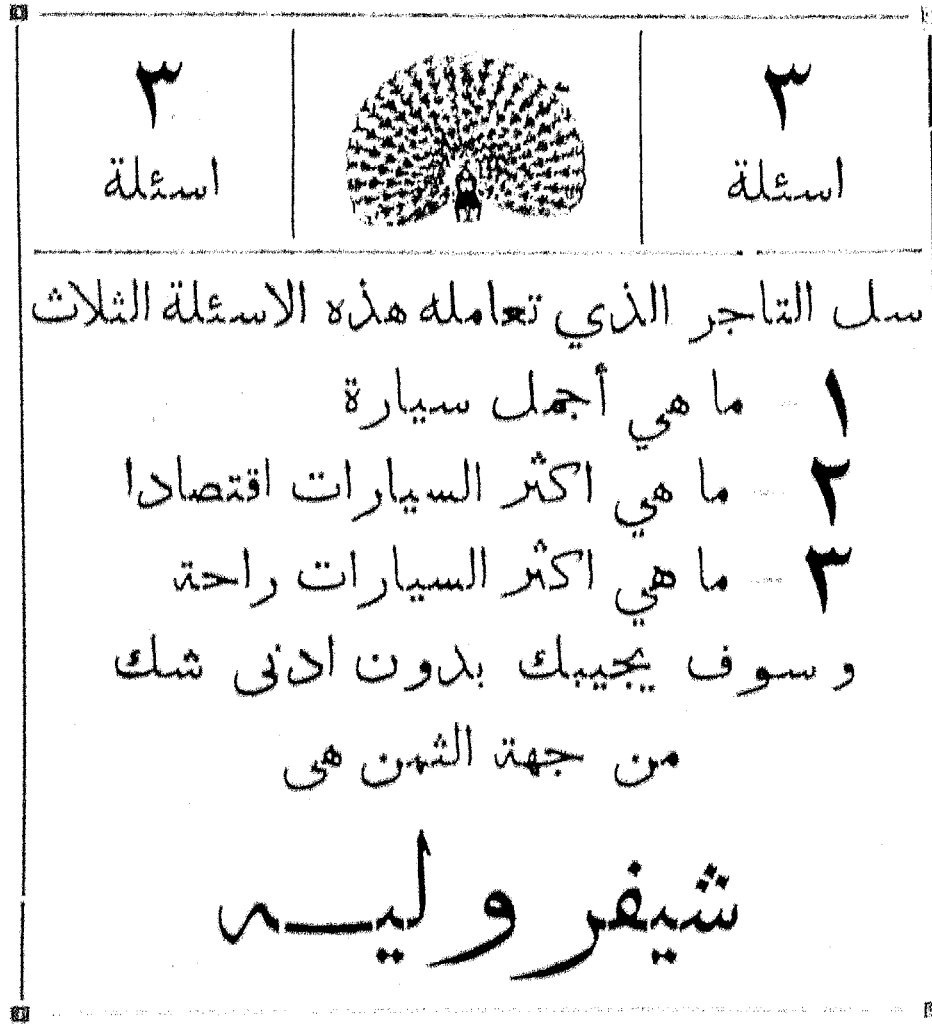 ٣
اسئلة
٣
اسئلة
سل التاجر الذي تعامله هذه الاسئلة الثلاث
١ - ما هي أجمل سيارة
٢ - ما هي اكثر السيارات اقتصادا
٣ - ما هي اكثر السيارات راحة
وسوف يجيبك بدون ادنى شك
من جهة الثمن هى
شيفروليه